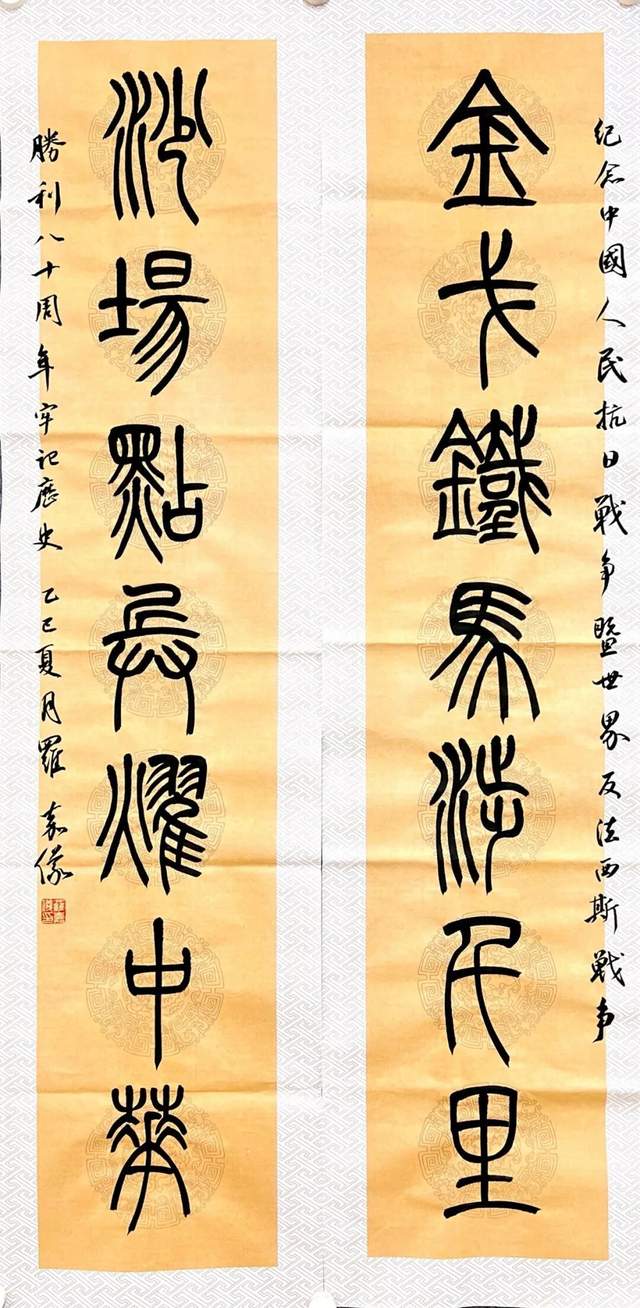 紀念中國人民抗日戰争暨世界反法西斯戰争
金戈鐵馬涉千里
沙場點兵耀中華
勝利八十周年牢記歷史 乙巳夏月羅嘉儀